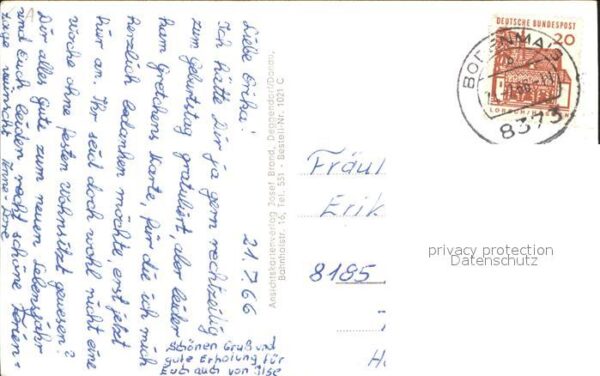 21.7.66
Liebe Erika!
Ich hätte Dir ja gern rechtzeitig
zum Geburtstag gratuliert, aber leider
kam Gretchens Karte, für die ich mich
herzlich bedanken möchte, erst jetzt
hier an. Ihr seid doch wohl nicht eine
Woche ohne festen Wohnsitz gewesen?
Dir alles gute zum neuen Lebensjahr
und Euch beiden recht schöne Ferien-
tage wünscht Anne-Lore
Schönen Gruß und
gute Erholung für
Euch auch von Ilse
Ansichtskartenverlag Josef Brand, Deggendorf/Donau,
Bahnhofstr. 16, Tel. 551 - Bestell-Nr. 1021 C
DEUTSCHE BUNDESPOST
20
BODENMAIS
8373
Fräul
Erik
8185
privacy protection
Datenschutz